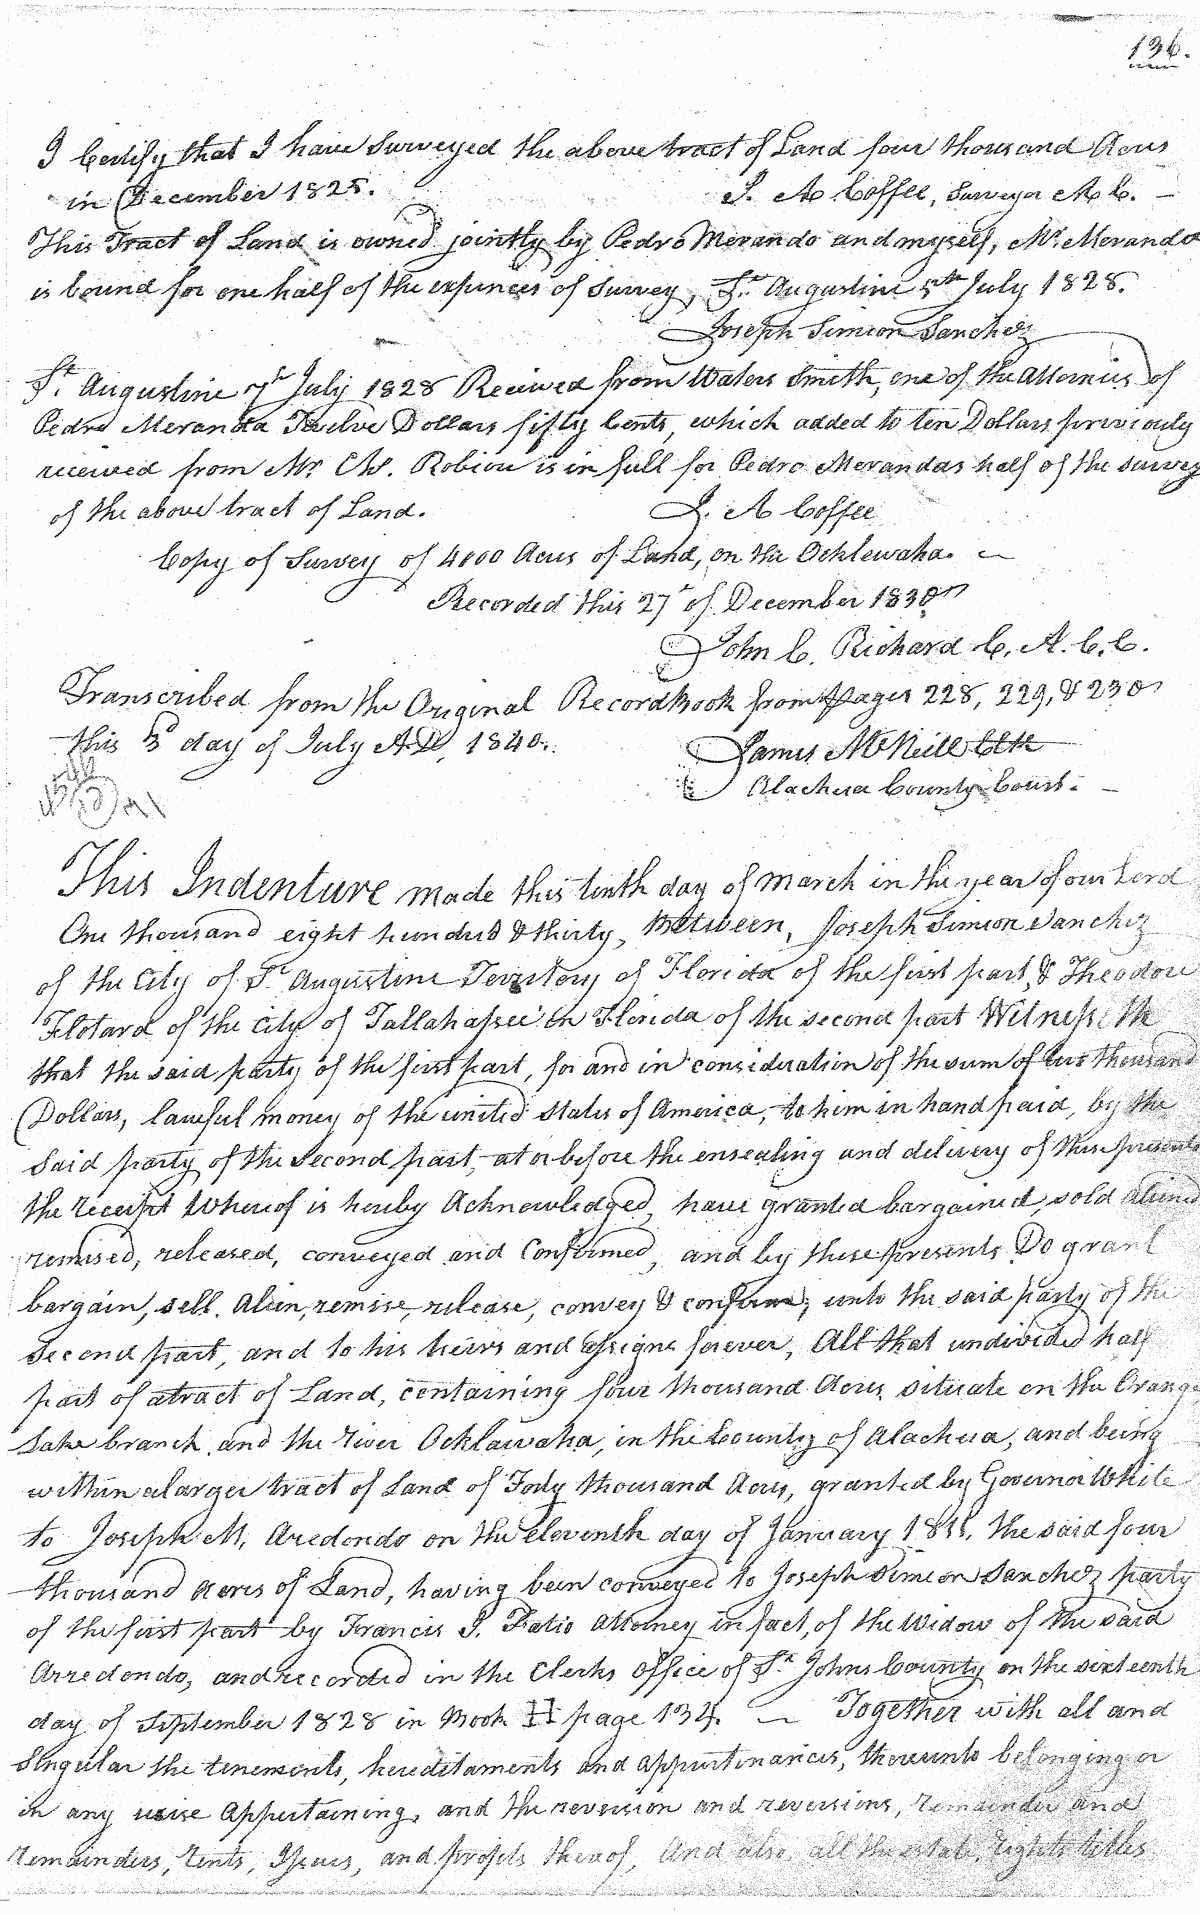 136.
I Certify that I have Surveyed the above tract of Land four thousand Acres
in December 1825. J. A Coffee, Surveyor A C. —
This Tract of Land is owned jointly by Pedro Merando and myself, Mr. Merando
is bound for one half of the expences of Survey, St. Augustine 5th July 1828.
Joseph Simeon Sanchez
St. Augustine 7th July 1828 Received from Waters Smith, one of the Attornies of
Pedro Meranda Twelve Dollars fifty Cents, which added to ten Dollars previously
received from Mr. Chs. Robiou is in full for Pedro Merandas half of the survey
of the above tract of Land. J. A Coffee
Copy of Survey of 4000 Acres of Land, on the Ocklewaha. —
Recorded this 27th of December 1830
John C. Richard C. A. C. C.
Transcribed from the Original Record Book from pages 228, 229, & 230
this 3d day of July A.D, 1840.
James McNeill Clk
Alachua County Court. —
This Indenture made this tenth day of March in the year of our Lord
One thousand eight hundred & thirty, Between, Joseph Simeon Sanchez
of the City of St. Augustine Territory of Florida of the first part, & Theodore
Flotard of the city of Tallahassee in Florida of the second part Witnesseth
that the said party of the first part, for and in consideration of the sum of two thousand
Dollars, lawful money of the united states of America, to him in hand paid, by the
said party of the second part, at or before the ensealing and delivery of these presents
the receipt whereof is hereby Acknowledged, have granted bargained, sold aliened
remised, released, conveyed and Confirmed, and by these presents Do grant
bargain, sell. Alien, remise, release, convey & confirm, unto the said party of the
second part, and to his heirs and assigns forever, All that undivided half
part of a tract of Land, containing four thousand Acres situate on the Orange
Lake branch, and the river Ocklawaha, in the County of Alachua, and being
within a larger tract of Land of Forty thousand Acres, granted by Governor White
to Joseph M. Aredondo on the eleventh day of January 1811. the said four
thousand Acres of Land, having been conveyed to Joseph Simeon Sanchez party
of the first part by Francis J. Fatio Attorney in fact, of the Widow of the said
Arredondo, and recorded in the Clerks Office of St. Johns County on the sixteenth
day of September 1828 in Book H page 134. — Together with all and
Singular the tenements, hereditaments and appurtinances, thereunto belonging or
in any wise Appertaining, and the reversion and reversions, remainder and
remainders, rents, Issues, and profits thereof, And also all the estate, rights titles